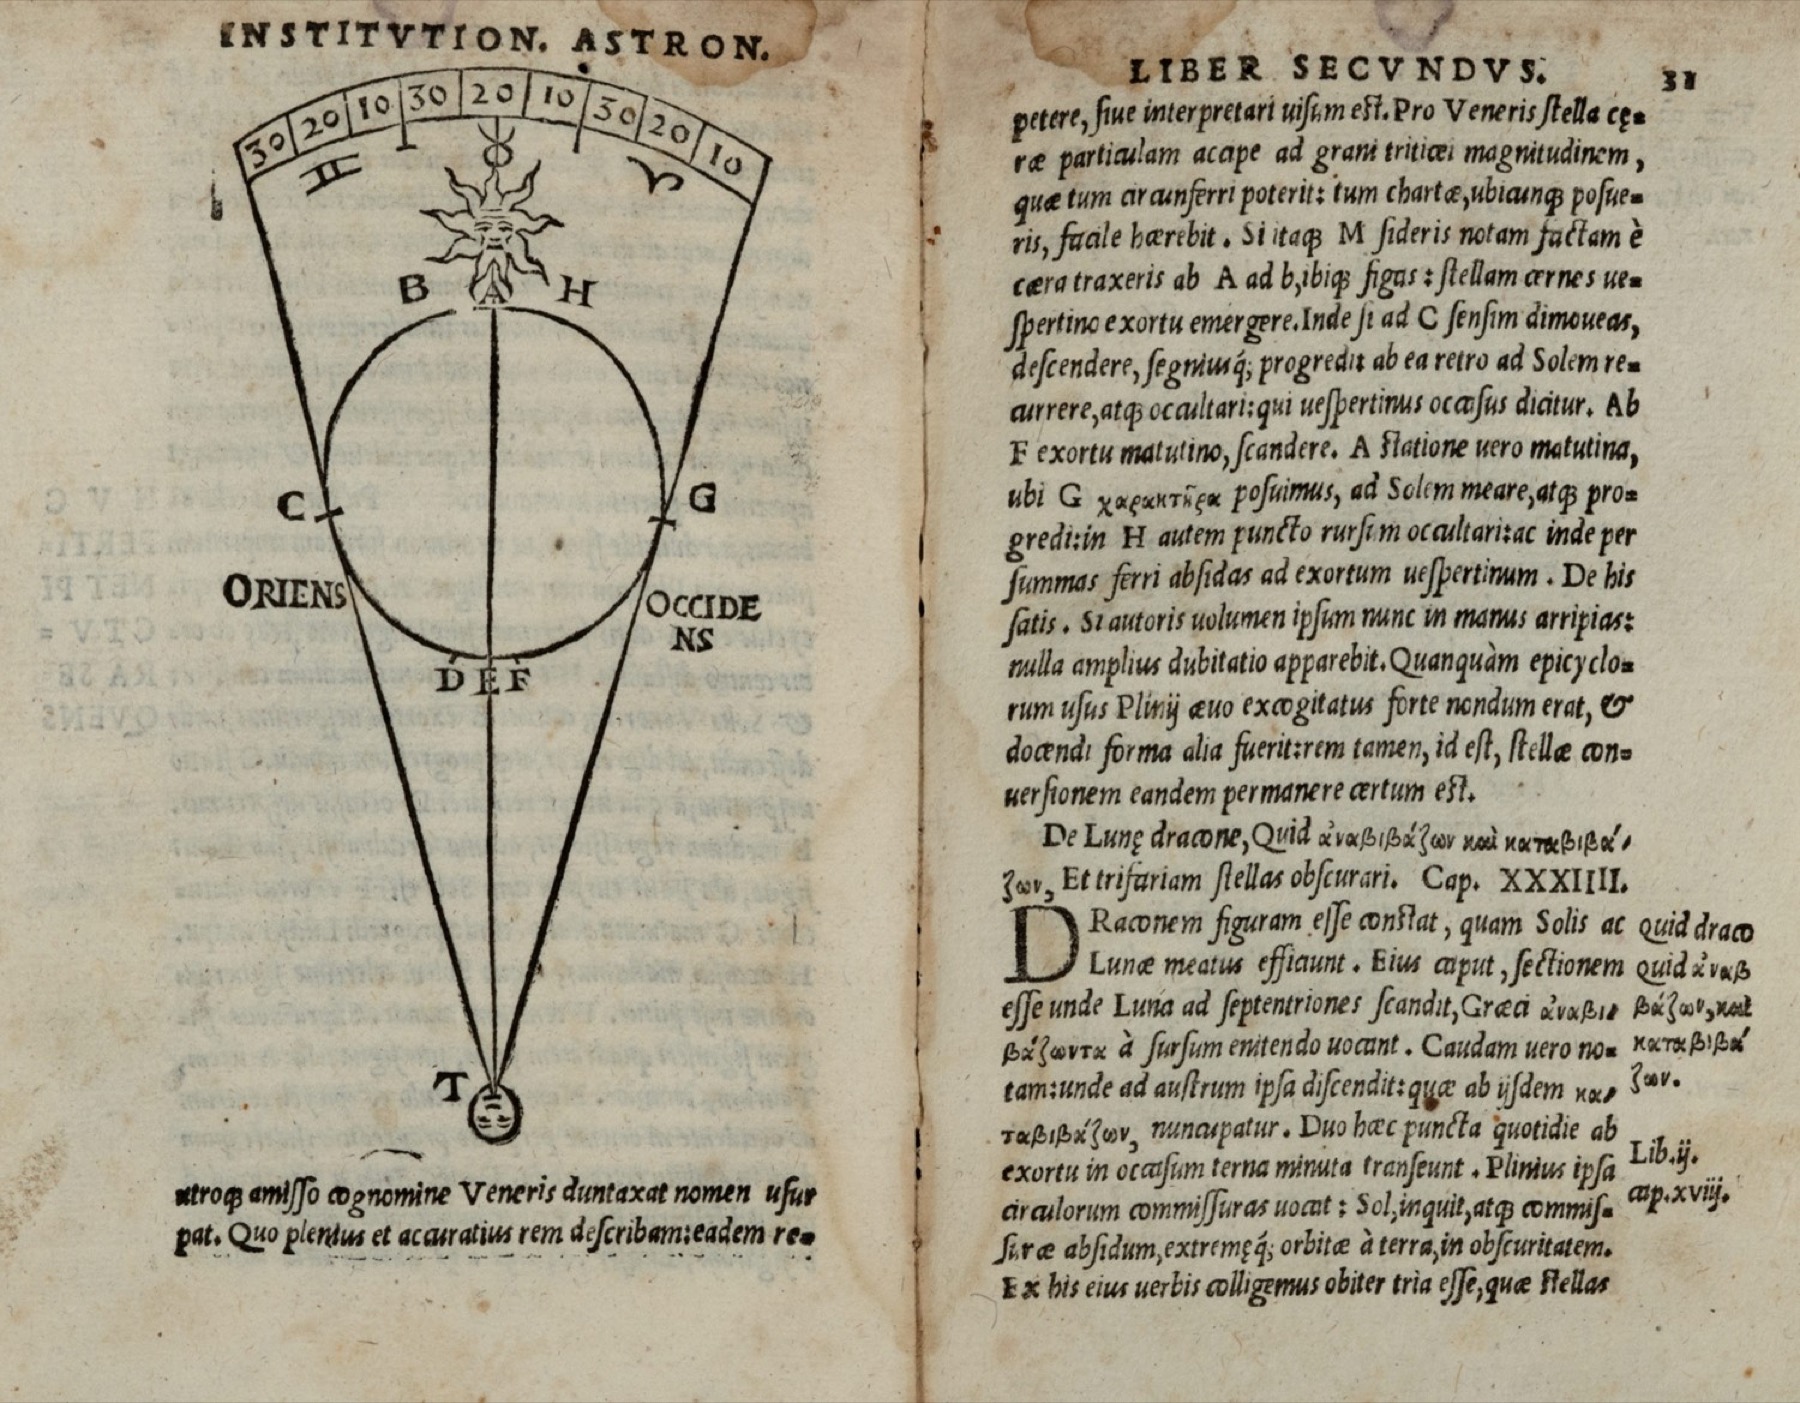 INSTITVTION. ASTRON.
30 20 10 30 20 10 30 20 10
♊ ♉ ♈
B A H
C G
ORIENS OCCIDE
NS
D E F
T
utroq; amisso cognomine Veneris duntaxat nomen usur
pat. Quo plenius et accuratius rem describam: eadem re=
LIBER SECVNDVS. 31
petere, siue interpretari uisum est. Pro Veneris stella cę=
ræ particulam accipe ad grani triticei magnitudinem,
quæ tum circunferri poterit: tum chartæ, ubicunq; posue=
ris, facile hærebit. Si itaq; M sideris notam factam è
cæra traxeris ab A ad b, ibiq; figas: stellam cernes ue=
spertino exortu emergere. Inde si ad C sensim dimoueas,
descendere, segniusq́; progredi: ab ea retro ad Solem re=
currere, atq; occultari: qui uespertinus occasus dicitur. Ab
F exortu matutino, scandere. A statione uero matutina,
ubi G χαρακτῆρα posuimus, ad Solem meare, atq; pro=
gredi: in H autem puncto rursum occultari: ac inde per
summas ferri absidas ad exortum uespertinum. De his
satis. Si autoris uolumen ipsum nunc in manus arripias:
nulla amplius dubitatio apparebit. Quanquàm epicyclo=
rum usus Plinij æuo excogitatus forte nondum erat, &
docendi forma alia fuerit: rem tamen, id est, stellæ con=
uersionem eandem permanere certum est.
De Lunę dracone, Quid ἀναβιβάζων καὶ καταβιβά-
ζων, Et trifariam stellas obscurari. Cap. XXXIIII.
DRaconem figuram esse constat, quam Solis ac
Lunæ meatus efficiunt. Eius caput, sectionem
esse unde Luna ad septentriones scandit, Græci ἀναβι-
βάζωντα à sursum enitendo uocant. Caudam uero no=
tam: unde ad austrum ipsa discendit: quæ ab ijsdem κα-
ταβιβάζων, nuncupatur. Duo hæc puncta quotidie ab
exortu in occasum terna minuta transeunt. Plinius ipsa
circulorum commissuras uocat: Sol, inquit, atq; commis=
suræ absidum, extremęq́; orbitæ à terra, in obscuritatem.
Ex his eius uerbis colligemus obiter tria esse, quæ stellas
Quid draco
Quid ἀναβ
βάζων, καὶ
καταβιβά
ζων.
Lib. ij.
cap. xviij.